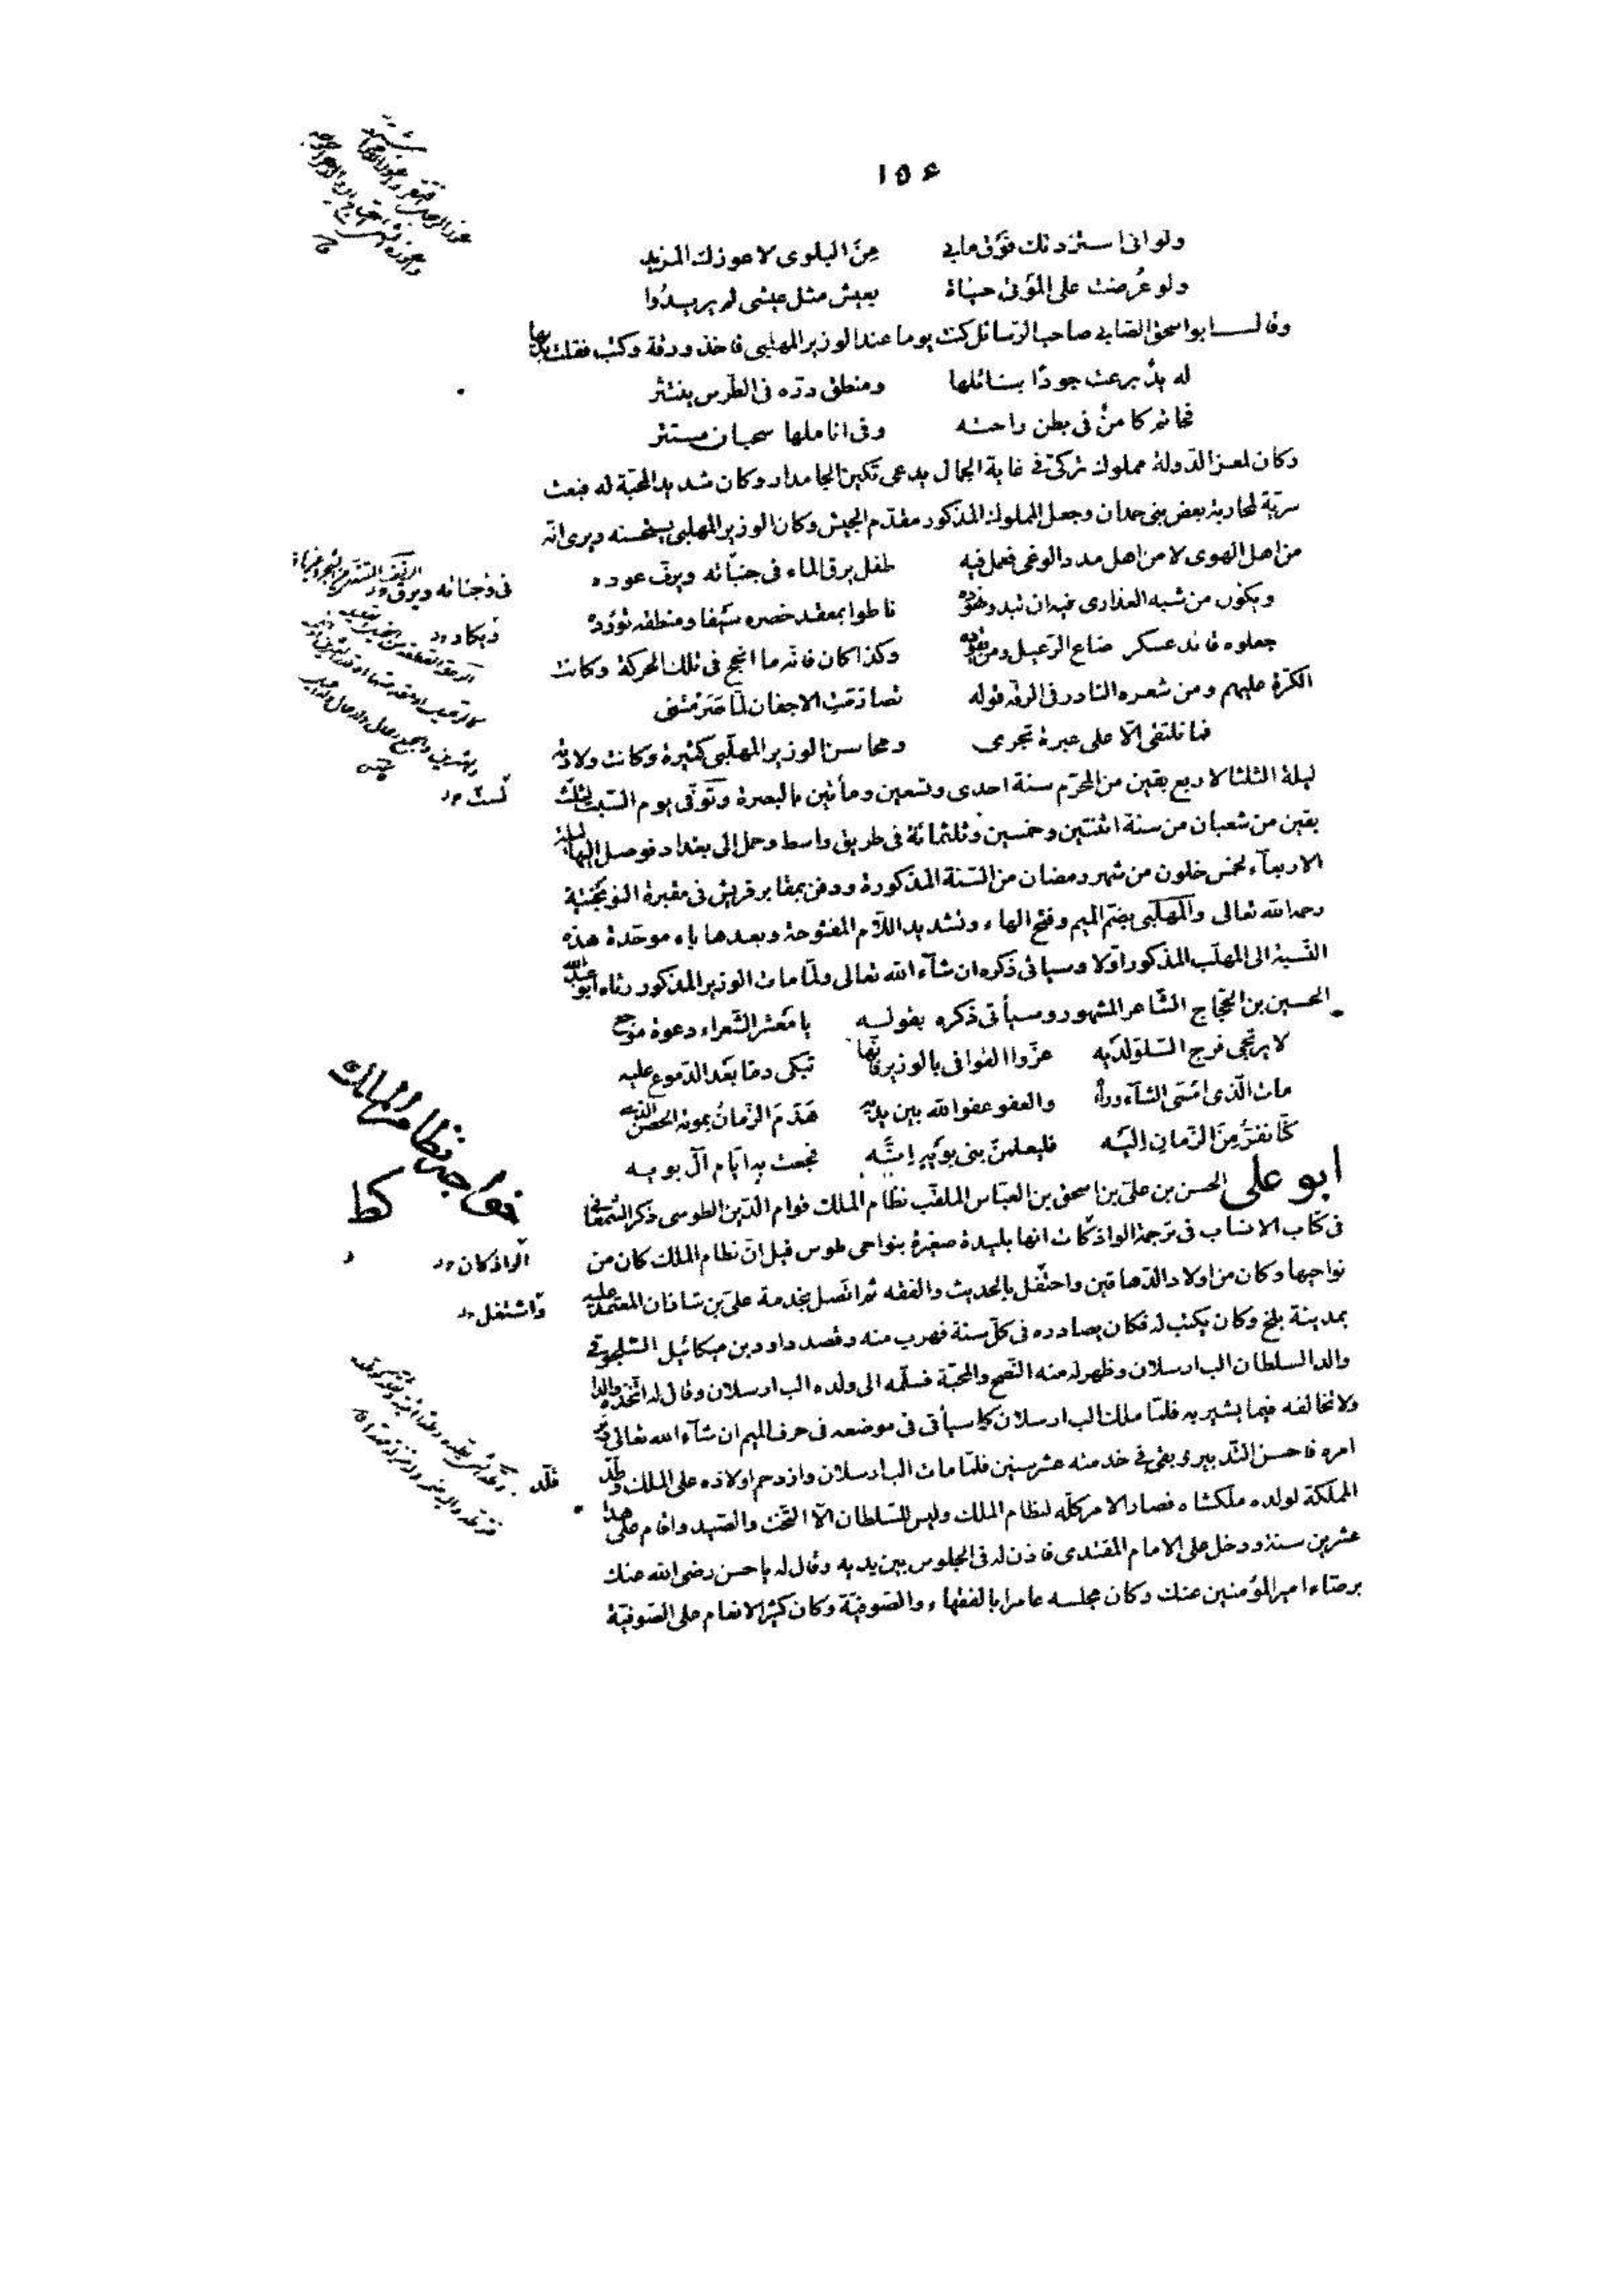 ١٥٤
ولو انى استزدتك فوق مابى من البلوى لاعوزك المزيد
ولو عُرضت على الموتى حياة بعيش مثل عيشى لم يريدُوا
وقال ابو اسحق الصابى صاحب الرسائل كنت يوما عند الوزير المهلبى فاخذ ورقة وكتب فقلت بديها
له يد برعت جودًا بنائلها ومنطق درّه فى الطرس ينتثر
فحاتم كامنٌ فى بطن راحته وفى اناملها سحبان مستتر
وكان لمعز الدّولة مملوك تركىّ فى غاية الجمال يدعى تكين الجامدار وكان شديد المحبّة له فبعث
سريّة لمحاربة بعض بنى حمدان وجعل المملوك المذكور مقدّم الجيش وكان الوزير المهلبى يستحسنه ويرى انّه
من اهل الهوى لا من اهل مدد الوغى فعمل فيه طفل يرق الماء فى جنباته ويرفّ عوده
ويكون من شبه العذارى فيه ان تبدو نهوده ناطوا بمعقد خصره سيفا ومنطقه تؤوده
جعلوه قائد عسكر ضاع الرعيل ومن يقوده وكذا كان فانّه ما انجح فى تلك الحركة وكانت
الكرّة عليهم ومن شعره النادر فى الرقّة قوله تصارمت الاجفان لمّا صرمتنى
فما نلتقى الّا على عبرة تجرى ومحاسن الوزير المهلّبى كثيرة وكانت ولادته
ليلة الثلثا لاربع بقين من المحرّم سنة احدى وتسعين ومأتين بالبصرة وتوفّى يوم السّبت لثلث
بقين من شعبان من سنة اثنتين وخمسين وثلثمائة فى طريق واسط وحمل الى بغداد فوصل اليها ليلة
الاربعآء لخمس خلون من شهر رمضان من السّنة المذكورة ودفن بمقابر قريش فى مقبرة النوبختية
رحمه الله تعالى والمهلّبى بضمّ الميم وفتح الهاء وتشديد اللّام المفتوحة وبعدها باء موحّدة هذه
النّسبة الى المهلّب المذكور اوّلا وسياتى ذكره ان شآء الله تعالى ولمّا مات الوزير المذكور رثاه ابو عبد الله
الحسين بن الحجّاج الشّاعر المشهور وسيأتى ذكره بقوله يا معشر الشّعراء دعوة موجع
لا يرتجى فرج السّلوّ لديه عزّوا القوافى بالوزير فانّها تبكى دما بعد الدّموع عليه
مات الّذى امسى الثنآء ورآه والعفو عفو الله بين يديه هدم الزّمان بموته الحصن الّذى
كنّا نفرّ من الزّمان اليه فليعلمنّ بنى بويه انّه فجعت به ايّام آل بويه
ابو على الحسن بن علىّ بن اسحق بن العبّاس الملقّب نظام الملك قوام الدّين الطوسى ذكر السّمعانى
فى كتاب الانساب فى ترجمة الواذكات انها بليدة صغيرة بنواحى طوس قيل انّ نظام الملك كان من
نواحيها وكان من اولاد الدّهاقين واحتفل بالحديث والفقه ثم اتّصل بخدمة علىّ بن شاذان المعتمد عليه
بمدينة بلخ وكان يكتب له فكان يصادره فى كلّ سنة فهرب منه وقصد داود بن ميكائيل السّلجوقى
والد السلطان الب ارسلان وظهر له منه النّصح والمحبّة فسلّمه الى ولده الب ارسلان وقال له اتّخذه والدا
ولا تخالفه فيما يشير به فلمّا ملك الب ارسلان كما سيأتى فى موضعه فى حرف الميم ان شآء الله تعالى دبّر
امره فاحسن التّدبير وبقى فى خدمته عشر سنين فلمّا مات الب ارسلان وازدحم اولاده على الملك وطّد
المملكة لولده ملكشاه فصار الامر كلّه لنظام الملك وليس للسّلطان الّا التّخت والصّيد واقام على هذا
عشرين سنة ودخل على الامام المقتدى فاذن له فى الجلوس بين يديه وقال له يا حسن رضى الله عنك
برضاء امير المؤمنين عنك وكان مجلسه عامرا بالفقهاء والصّوفيّة وكان كثير الانعام على الصّوفيّة
فى وجناته ويرق
ويكاد
لست
خواجه نظام الملك
كط
الراذكان
واشتغل
قلّد